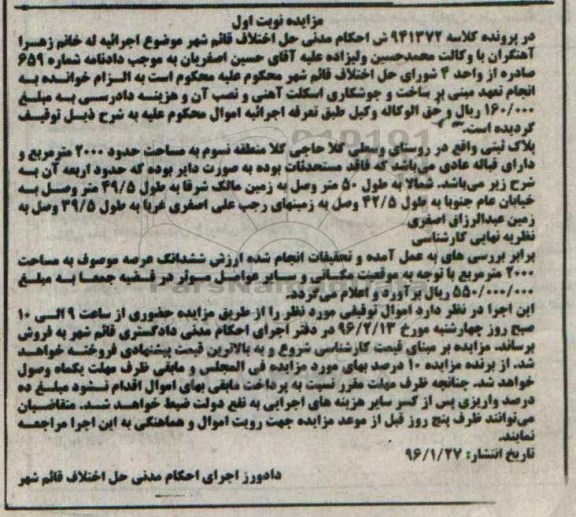 مزایده نوبت اول
در پرونده کلاسه ۹۴۱۳۷۲ ش احکام مدنی حل اختلاف قائم شهر موضوع اجرائیه له خانم زهـرا
آهنگران با وکالت محمدحسین ولیزاده علیه آقای حسین اصغریان به موجب دادنامه شماره ۶۵۹
صادره از واحد ۴ شورای حل اختلاف قائم شهر محکوم علیه محکوم است به الـزام خوانـده بـه
انجام تعهد مبنی بر ساخت و جوشکاری اسکلت آهنی و نصب آن و هزینـه دادرسـی بـه مبلـغ
۱۶۰/۰۰۰ ریال و حق الوکاله وکیل طبق تعرفه اجرائیه اموال محکوم علیه به شرح ذیـل توقیـف
گردیده است.
پلاک ثبتی واقع در روستای وسطی کلا حاجی کلا منطقه نسوم به مساحت حدود ۲۰۰۰ مترمربع و
دارای قباله عادی می‌باشد که فاقد مستحدثات بوده به صورت دایر بوده که حدود اربعه آن بـه
شرح زیر می‌باشد. شمالا به طول ۵۰ متر وصل به زمین مالک شرقا به طول ۴۹/۵ متر وصـل بـه
خیابان عام جنوبا به طول ۴۲/۵ وصل به زمینهای رجب علی اصغری غربا به طول ۳۹/۵ وصل به
زمین عبدالرزاق اصغری
نظریه نهایی کارشناسی
برابر بررسی های به عمل آمده و تحقیقات انجام شده ارزش ششدانگ عرصه موصوف به مساحت
۲۰۰۰ مترمربع با توجه به موقعیت مکـانی و سـایر عوامـل مـوثر در قـضیه جمعـا بـه مبلـغ
۵۵۰/۰۰۰/۰۰۰ ریال بر آورد و اعلام می‌گردد.
این اجرا در نظر دارد اموال توقیفی مورد نظر را از طریق مزایده حضوری از ساعت ۹ الـی ۱۰
صبح روز چهارشنبه مورخ ۹۶/۲/۱۳ در دفتر اجرای احکام مدنی دادگستری قائم شهر به فروش
برساند. مزایده بر مبنای قیمت کارشناسی شروع و به بالاترین قیمت پیشنهادی فروختـه خواهـد
شد. از برنده مزایده ۱۰ درصد بهای مورد مزایده فی المجلس و مابقی ظرف مهلت یکماه وصول
خواهد شد. چنانچه ظرف مهلت مقرر نسبت به پرداخت مابقی بهای اموال اقدام نـشود مبلـغ ده
درصد واریزی پس از کسر سایر هزینه های اجرایی به نفع دولت ضبط خواهـد شـد. متقاضـیان
می‌توانند ظرف پنج روز قبل از موعد مزایده جهت رویت اموال و هماهنگی به این اجرا مراجعـه
نمایند.
تاریخ انتشار: ۹۶/۱/۲۷
دادورز اجرای احکام مدنی حل اختلاف قائم شهر